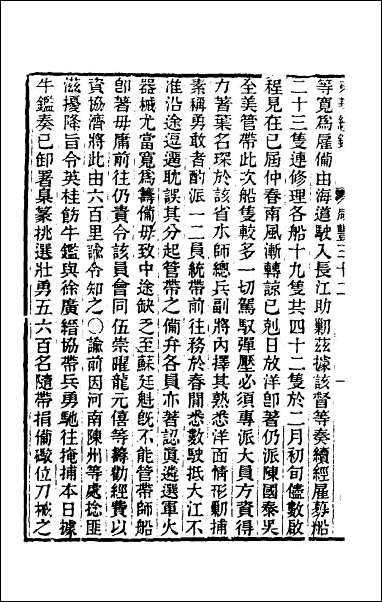 等寬爲雇備由海道駛入長江助勦茲據該督等奏續經雇募船
二十三隻連修理各船十九隻共四十二隻於二月初旬儘數啟
程見在已屆仲春南風漸轉諒已剋日放洋卽著仍派陳國泰吳
全美管帶此次船隻較多一切駕馭彈壓必須專派大員方資得
力著葉名琛於該省水師總兵副將內擇其熟悉洋面情形勦捕
素稱勇敢者酌派一二員統帶前往務於春閒悉數駛抵大江不
准沿途逗遛耽誤其分起管帶之備弁各員亦著認眞遴選軍火
器械尤當寬爲籌備毋致中途缺乏至蘇廷魁旣不能管帶師船
卽著毋庸前往仍責令該員會同伍崇曜龍元僖等籌勸經費以
資協濟將此由六百里諭令知之〇諭前因河南陳州等處捻匪
滋擾降旨令英桂飭牛鑑與徐廣縉協帶兵勇馳往掩捕本日據
牛鑑奏已卸署臬篆挑選壯勇五六百名隨帶捐備礮位刀械之